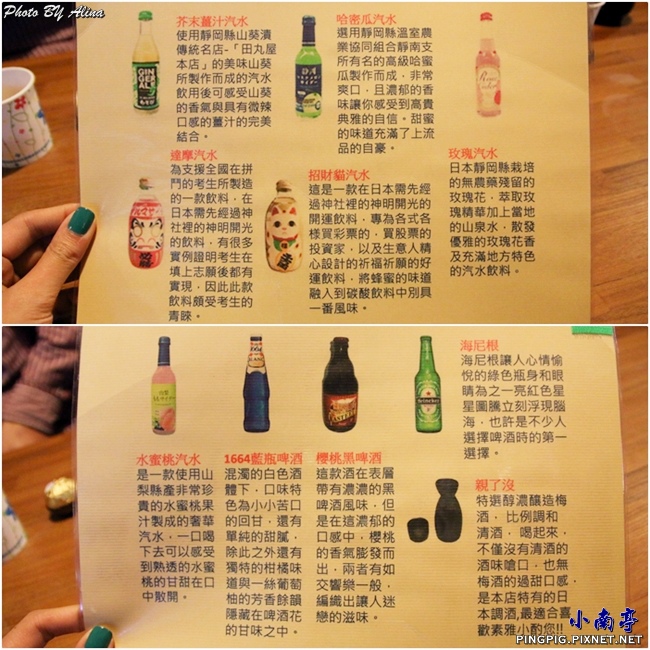 Photo BY Alina
芥末薑汁汽水
使用靜岡縣山葵漬
傳統名店-「田丸屋
本店」的美味山葵
所製作而成的汽水
飲用後可感受山葵
的香氣與具有微辣
口感的薑汁的完美
結合。
哈密瓜汽水
選用靜岡縣溫室農
業協同組合靜南支
所有名的高級哈蜜
瓜製作而成，非常
爽口，且濃郁的香
味讓你感受到高貴
典雅的自信。甜蜜
的味道充滿了上流
品的自豪。
達摩汽水
為支援全國在拼
鬥的考生所製造
的一款飲料，在
日本需先經過神
社裡的神明開光
的飲料，有很多
實例證明考生在
填上志願後都有
實現，因此此款
飲料頗受考生的
青睞。
招財貓汽水
這是一款在日本需先經
過神社裡的神明開光的
開運飲料，專為各式各
樣買彩票的，買股票的
投資家，以及生意人精
心設計的祈福祈願的好
運飲料，將蜂蜜的味道
融入到碳酸飲料中別具
一番風味。
玫瑰汽水
日本靜岡縣栽培
的無農藥殘留的
玫瑰花，萃取玫
瑰精華加上當地
的山泉水，散發
優雅的玫瑰花香
及充滿地方特色
的汽水飲料。
GIN
GER
ALE
海尼根
海尼根讓人心情愉
悅的綠色瓶身和眼
睛為之一亮紅色星
星圖騰立刻浮現腦
海，也許是不少人
選擇啤酒時的第一
選擇。
Heineken
水蜜桃汽水
是一款使用山
梨縣產非常珍
貴的水蜜桃果
汁製成的奢華
汽水，一口喝
下去可以感受
到熟透的水蜜
桃的甘甜在口
中散開。
1664藍瓶啤酒
混濁的白色酒
體下，口味特
色為小小苦口
的回甘，還有
單純的甜膩，
除此之外還有
獨特的柑橘味
道與一絲葡萄
柚的芳香餘韻
隱藏在啤酒花
的甘味之中。
櫻桃黑啤酒
這款酒在表層
帶有濃濃的黑
啤酒風味，但
是在這濃郁的
口感中，櫻桃
的香氣膨發而
出，兩者有如
交響樂一般，
編織出讓人迷
戀的滋味。
親了沒
特選醇濃釀造梅
酒，比例調和
清酒，喝起來，
不僅沒有清酒的
酒味嗆口，也無
梅酒的過甜口感，
是本店特有的日
本調酒,最適合喜
歡素雅小酌您!!
小南亭
PINGPIG.PIXNET.NET